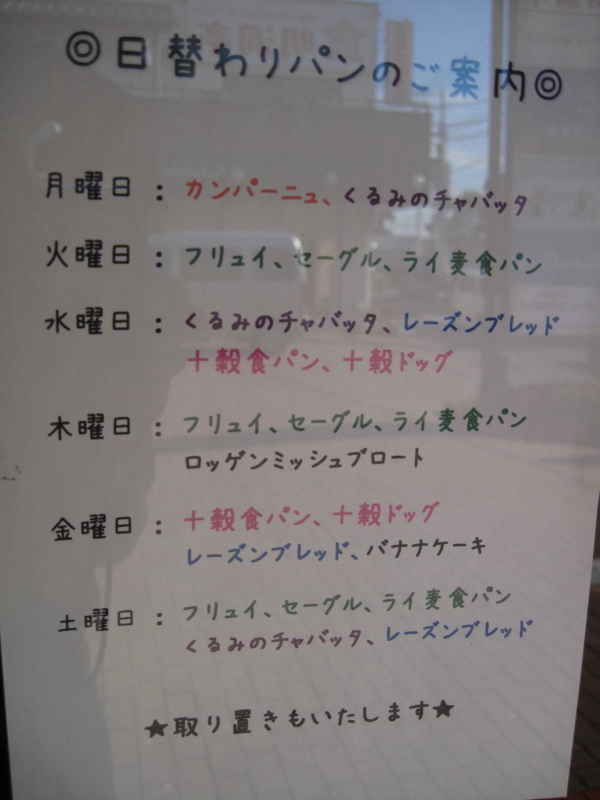 ◎日替わりパンのご案内◎
月曜日：カンパーニュ、くるみのチャバッタ
火曜日：フリュイ、セーグル、ライ麦食パン
水曜日：くるみのチャバッタ、レーズンブレッド
十穀食パン、十穀ドッグ
木曜日：フリュイ、セーグル、ライ麦食パン
ロッゲンミッシュブロート
金曜日：十穀食パン、十穀ドッグ
レーズンブレッド、バナナケーキ
土曜日：フリュイ、セーグル、ライ麦食パン
くるみのチャバッタ、レーズンブレッド
★取り置きもいたします★